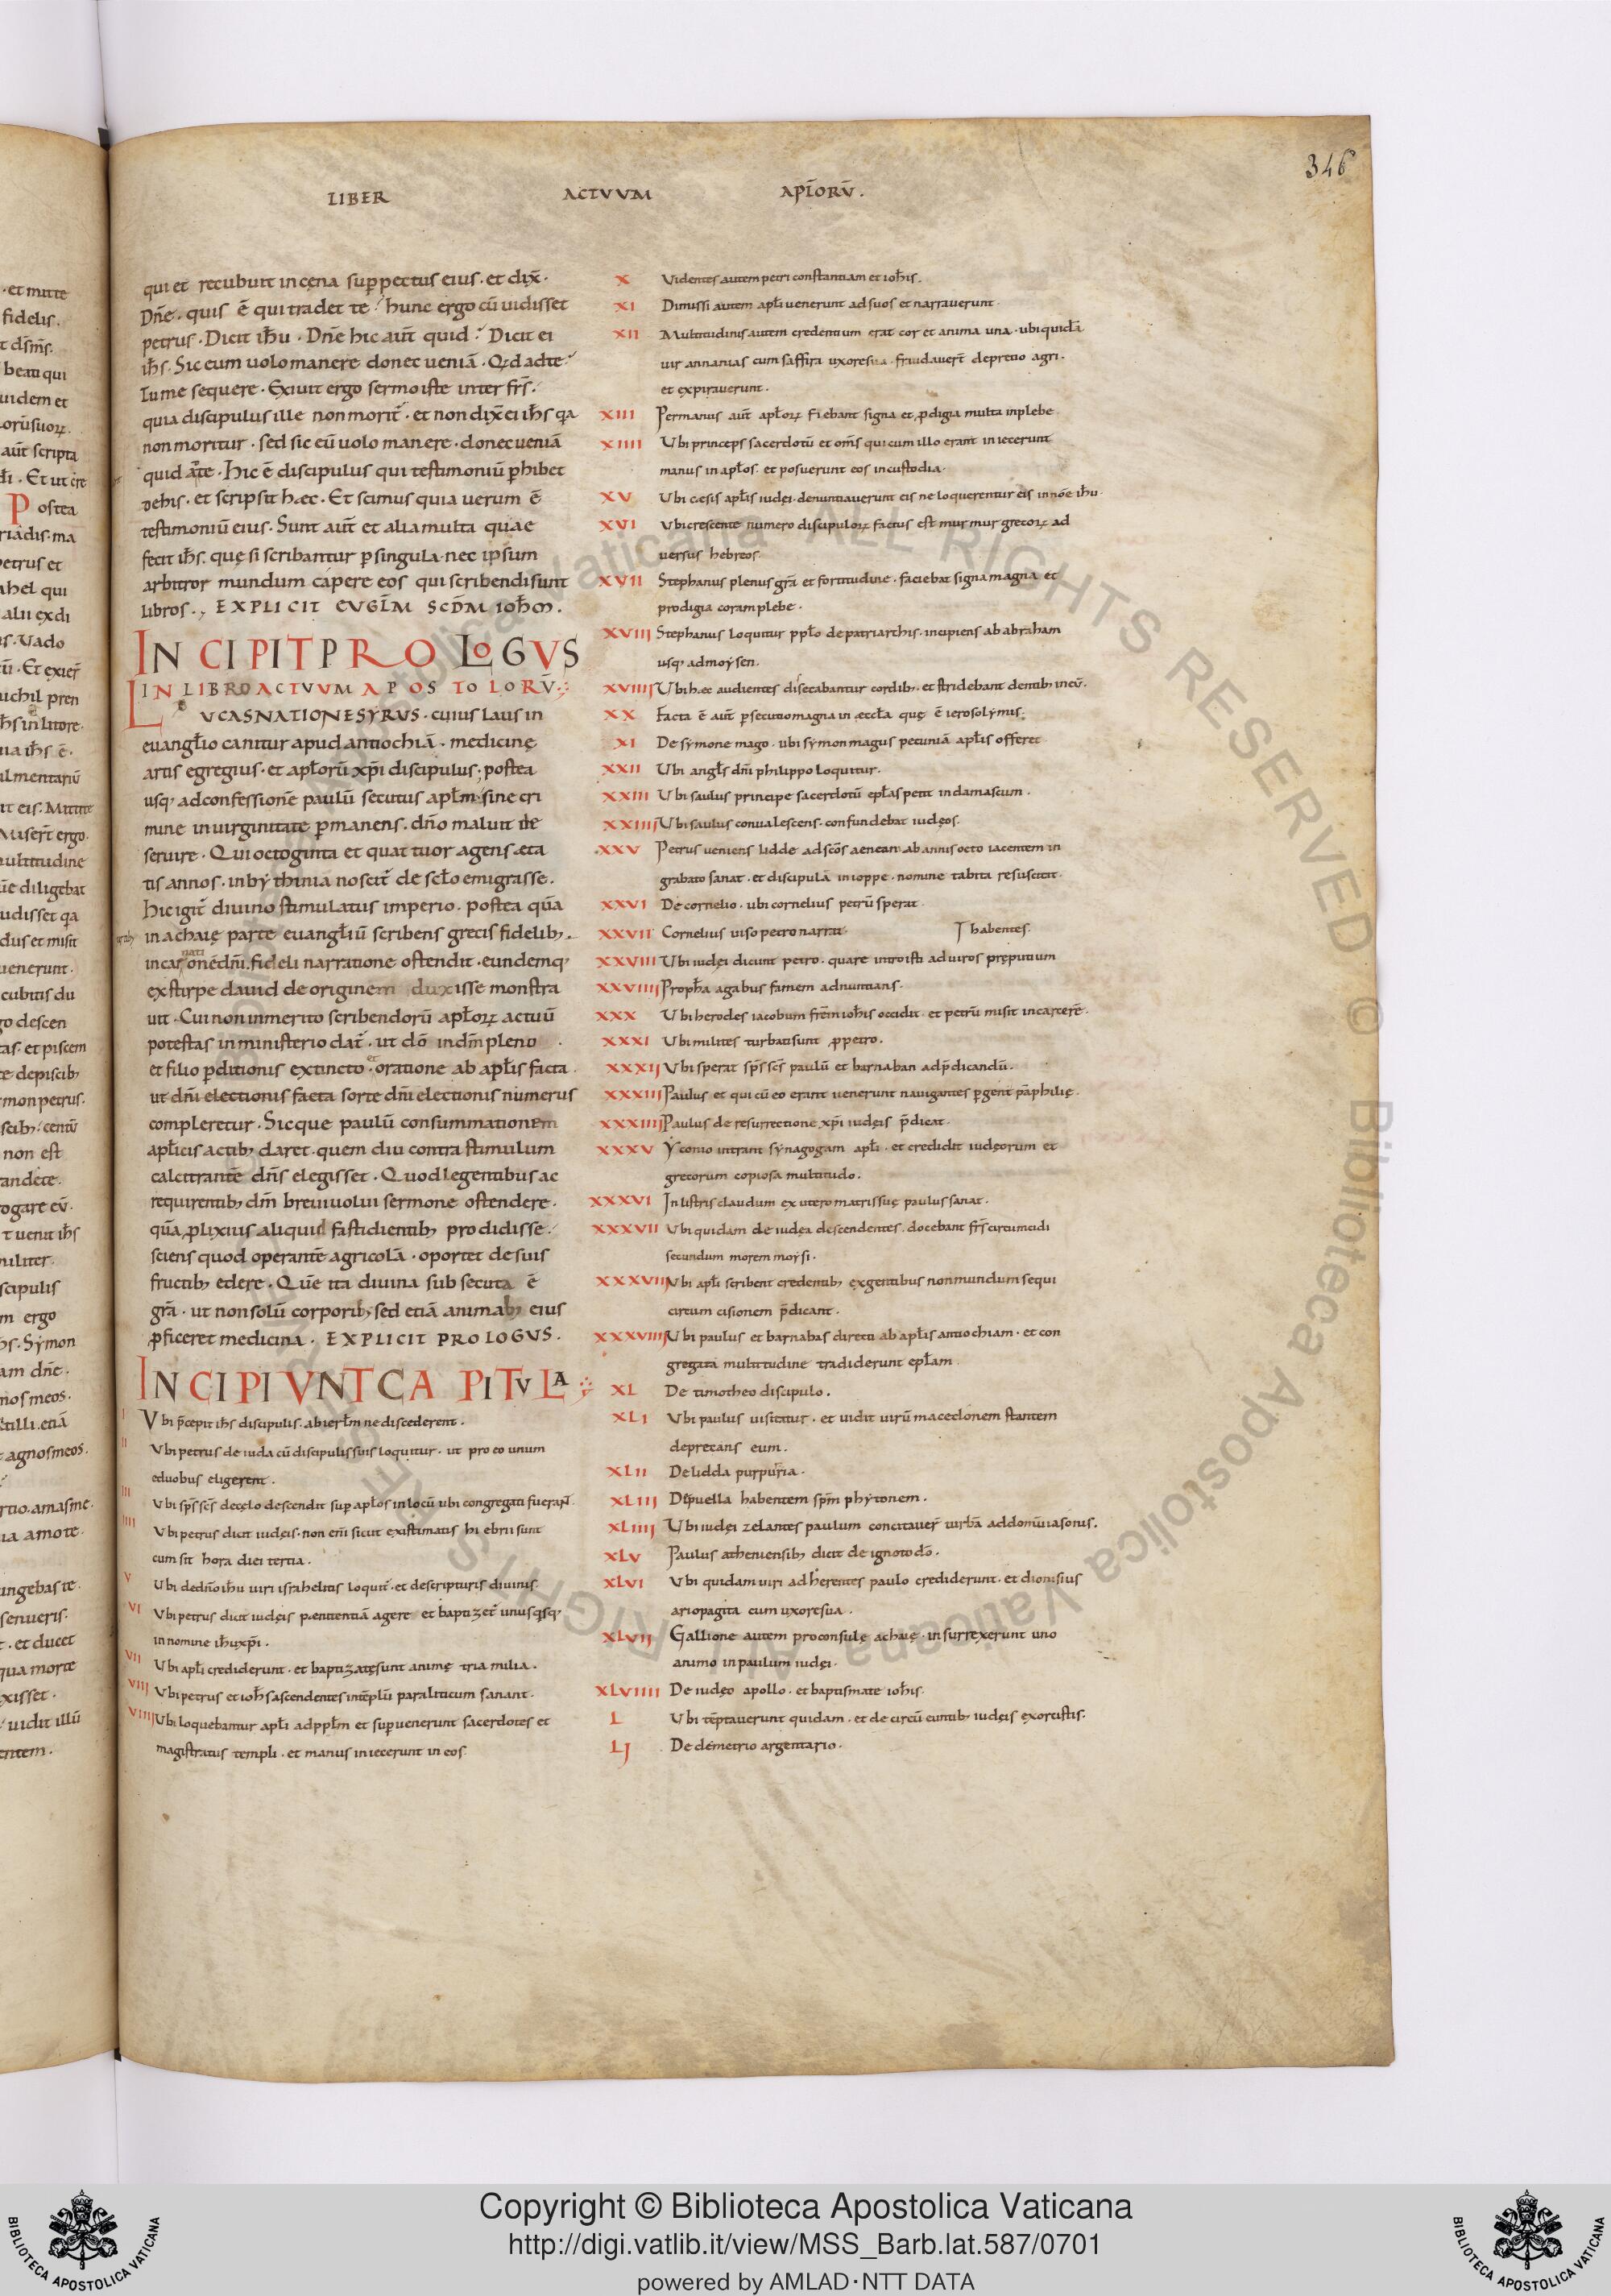 346
LIBER ACTVVM APL̄ORŪ.
qui et recubuit in cęna supˢ pectus eius · et dix̄ ·
Dn̄e · quis ē qui tradet te? hunc ergo cū uidisset
petrus · Dicit ih̄u · Dn̄e hic aut̄ quid? Dicit ei
ih̄s · Sic eum uolo manere donec ueniā · Qd ad te?
Tu me sequere · Exiuit ergo sermo iste inter fr̄s ·
quia discipulus ille non morit̄ · et non dix̄ ei ih̄s qa
non moritur · sed sic eū uolo manere · donec ueniā
quid a te · Hic ē discipulus qui testimoniū phibet
de his · et scripsit hæc · Et scimus quia uerum ē
testimoniū eius · Sunt aut̄ et alia multa quae
fecit ih̄s · quę si scribantur p singula · nec ipsum
arbitror mundum capere eos qui scribendi sunt
libros ., EXPLICIT EVGL̄M SCD̄M IOH̄M .
INCIPIT PROLOGVS
IN LIBRO ACTVVM APOSTOLORŪ .
LVCAS NATIONE SYRUS · cuius laus in
euangl̄io canitur apud antiochiā · medicinę
artis egregius · et apl̄orū xp̄i discipulus; postea
usq; ad confessionē paulū secutus apl̄m · sine cri
mine in uirginitate pmanens · dn̄o maluit
seruire · Qui octoginta et quattuor agens æta
tis annos · in bythinia noscit̄ de scl̄o emigrasse ·
Hic igit̄ diuino stimulatus imperio · postea quā
in achaię parte euangl̄iū scribens grecis fidelib; ·
incarnationē dn̄i · fideli narratione ostendit · eundemq;
ex stirpe dauid de originem duxisse monstra
uit · Cui non inmerito scribendorū apl̄oꝝ actuū
potestas in ministerio dat̄ · ut dō in dm̄ pleno ·
et filio pditionis extincto · oratione ab apl̄is facta ·
ut dn̄i electionis facta sorte dn̄i electionis numerus
compleretur · Sicque paulū consummationem
apl̄icis actib; daret · quem diu contra stimulum
calcitrantē dn̄s elegisset · Quod legentibus ac
requirentib; dm̄ breui uolui sermone ostendere ·
quā plixius aliquid fastidientib; prodidisse ·
sciens quod operantē agricolā · oportet de suis
fructib; edere · Quē ita diuina subsecuta ē
gr̄a · ut non solū corporib; sed etiā animab; eius
pficeret medicina · EXPLICIT PROLOGVS .
INCIPIVNT CAPITVLA
I Vbi p̄cepit ih̄s discipulis · ab ierl̄m ne discederent .
II Vbi petrus de iuda cū discipulis suis loquitur · ut pro eo unum
e duobus eligerent .
III Vbi sp̄s sc̄s de cęlo descendit sup apl̄os in locū ubi congregati fuerant .
IIII Vbi petrus dicit iudęis · non eni sicut existimatis hi ebrii sunt
cum sit hora diei tertia .
V Vbi de dn̄o ih̄u uiri israhelitis loquit̄ · et de scripturis diuinis
VI Vbi petrus dicit iudęis pęnitentiā agere et baptizet̄ unusqsq;
in nomine ih̄u xp̄i .
VII Vbi apl̄i crediderunt · et baptizatę sunt animę tria milia .
VIII Vbi petrus et ioh̄s ascendentes in tēplū paraliticum sanant .
VIIII Vbi loquebantur apl̄i ad ppl̄m et sup uenerunt sacerdotes et
magistratus templi · et manus iniecerunt in eos
X Videntes autem petri constantiam et ioh̄is .
XI Dimissi autem apl̄i uenerunt ad suos et narrauerunt
XII Multitudinis autem credentium erat cor et anima una · ubi quidā
uir annanias cum saffira uxore sua · fraudauer̄t de pretio agri ·
et expirauerunt .
XIII Permanus aut̄ apl̄oꝝ fiebant signa et pdigia multa in plebe
XIIII Vbi princeps sacerdotū et om̄s qui cum illo erant iniecerunt
manus in apl̄os · et posuerunt eos in custodia ·
XV Vbi cæsis apl̄is iudęi · denuntiauerunt eis ne loquerentur eis in nōe ih̄u ·
XVI Vbi crescente numero discipuloꝝ factus est murmur grecoꝝ ad
uersus hebreos .
XVII Stephanus plenus gr̄a et fortitudine · faciebat signa magna et
prodigia coram plebe ·
XVIII Stephanus loquitur ppl̄o de patriarchis · incipiens ab abraham
usq; ad moysen .
XVIIII Vbi hæc audientes disecabantur cordib; · et stridebant dentib; in eū .
XX Facta ē aut̄ psecutio magna in æccl̄a quę ē ierosolymis .
XI De symone mago · ubi symon magus pecuniā apl̄is offeret
XXII Vbi angl̄s dn̄i philippo loquitur .
XXIII Vbi saulus principe sacerdotū epl̄as petit in damascum .
XXIIII Vbi saulus conualescens · confundebat iudęos .
XXV Petrus ueniens lidde ad sc̄os aenean ab annis octo iacentem in
grabato sanat · et discipulā in ioppe · nomine tabita resuscitit ·
XXVI De cornelio · ubi cornelius petrū sperat
XXVII Cornelius uiso petro narrat · habentes
XXVIII Vbi iudęi dicunt petro · quare introisti ad uiros pręputium
XXVIIII Proph̄a agabus famem adnuntians ·
XXX Vbi herodes iacobum frēm ioh̄is occidit · et petrū misit in carcerē ·
XXXI Vbi milites turbati sunt p petro .
XXXII Vbi sperat sp̄s sc̄s paulū et barnaban ad p̄dicandū ·
XXXIII Paulus et qui cū eo erant uenerunt nauigantes pgent pāphilię ·
XXXIIII Paulus de resurrectione xp̄i iudęis p̄dicat ·
XXXV Yconio intrant synagogam apl̄i · et credidit iudęorum et
grecorum copiosa multitudo .
XXXVI In listris claudum ex utero matris suę paulus sanat ·
XXXVII Vbi quidam de iudęa descendentes · docebant fr̄s circumcidi
secundum morem moysi ·
XXXVIII Vbi apl̄i scribent credentib; ex gentibus non mundum sequi
circum cisionem p̄dicant ·
XXXVIIII Vbi paulus et barnabas directi ab apl̄is antiochiam · et con
gregata multitudine tradiderunt epl̄am .
XL De timotheo discipulo .
XLI Vbi paulus uisitatur · et uidit uirū macedonem stantem
deprecans eum .
XLII De lidda purpuria ·
XLIII De puella habentem sp̄m phytonem .
XLIIII Vbi iudęi zelantes paulum concitauer̄ turbā ad domū iasonis .
XLV Paulus atheniensib; dicit de ignoto dō .
XLVI Vbi quidam uiri adherentes paulo crediderunt · et dionisius
ariopagita cum uxore sua .
XLVII Gallione autem proconsulę achaię · insurrexerunt uno
animo in paulum iudęi ·
XLVIIII De iudęo apollo · et baptismate ioh̄is .
L Vbi tēptauerunt quidam · et de circū euntib; iudęis exorcistis .
LI De demetrio argentario .
Copyright © Biblioteca Apostolica Vaticana
http://digi.vatlib.it/view/MSS_Barb.lat.587/0701
powered by AMLAD·NTT DATA